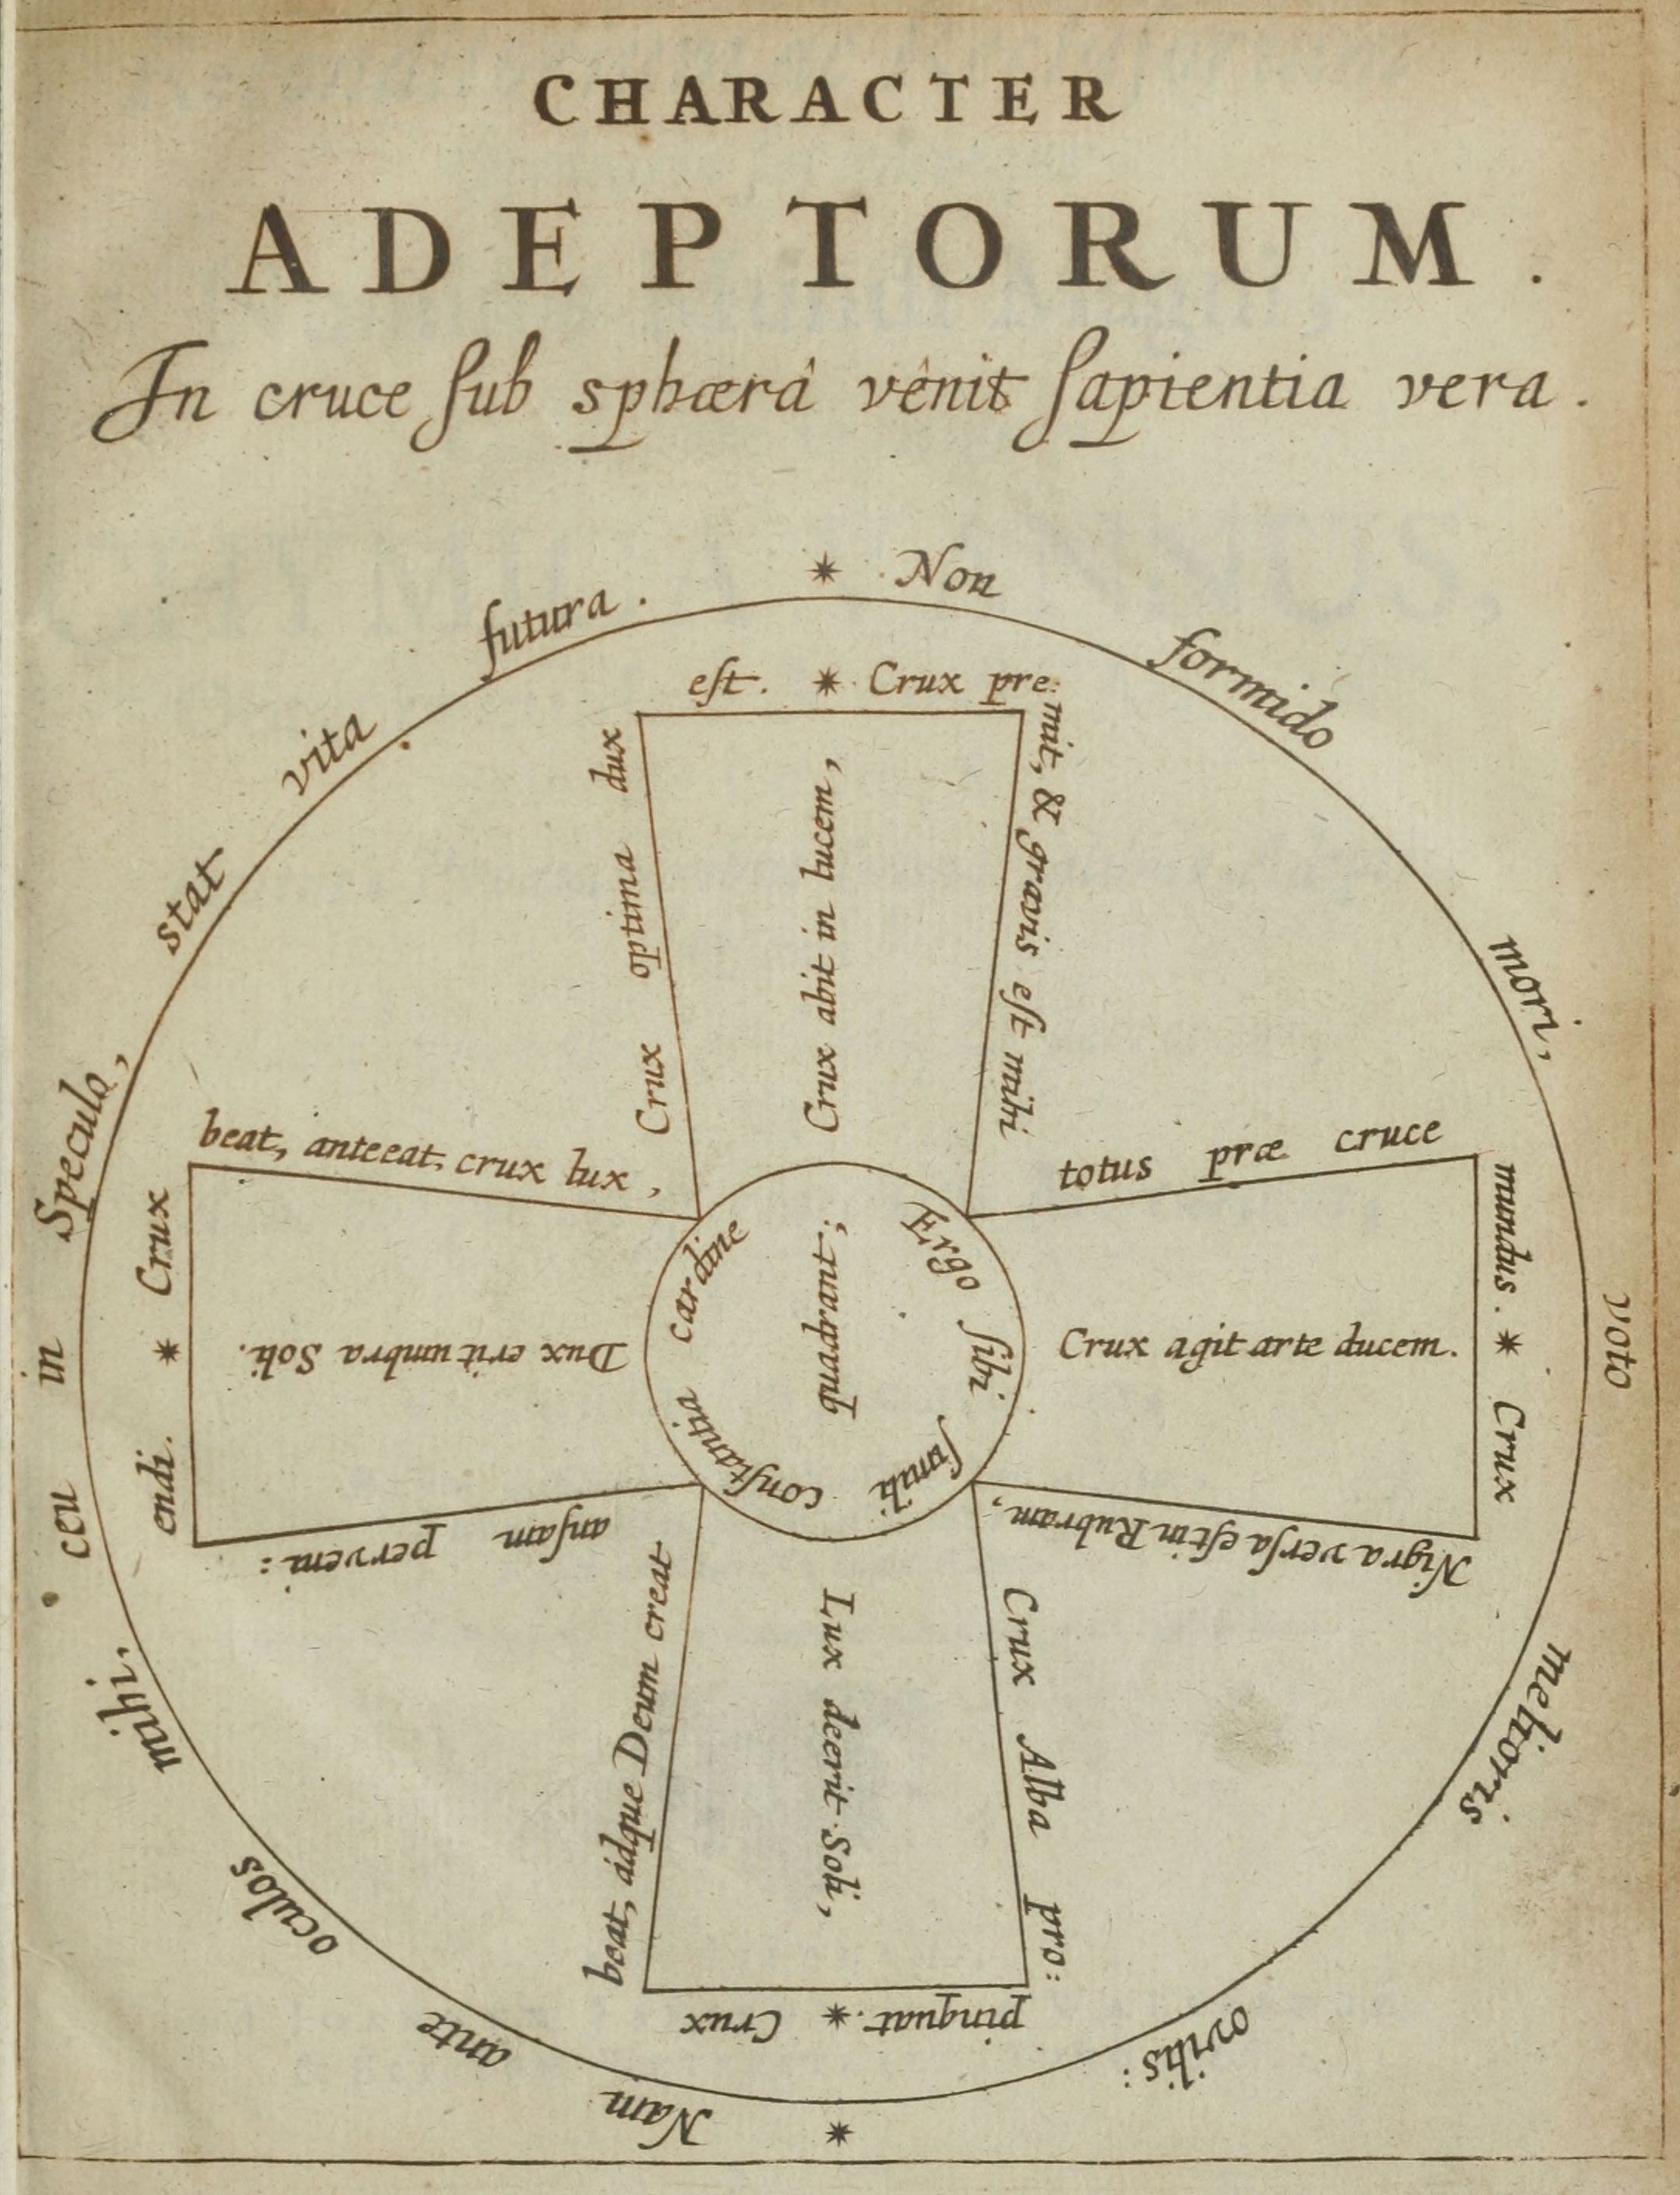 CHARACTER
ADEPTORUM.
In cruce ſub sphærâ vênit ſapientia vera.
* Non formido mori, voto melioris ovilis:
* Nam ante oculos mihi, ceu in Speculo, stat vita futura.
* Crux pre:
mit, & gravis eſt mihi
totus præ cruce
mundus.
* Crux
Nigra verſa eſt in Rubram,
Crux Alba pro:
pinquat.
* Crux
beat, ádque Deum creat
anſam perveni:
endi.
* Crux
beat, anteeat, crux lux,
Crux optima dux
eſt.
Crux abit in lucem,
Crux agit arte ducem.
Lux deerit Soli,
Dux erit umbra Soli.
Ergo ſibi ſimili conſtantia cardine
quadrant;